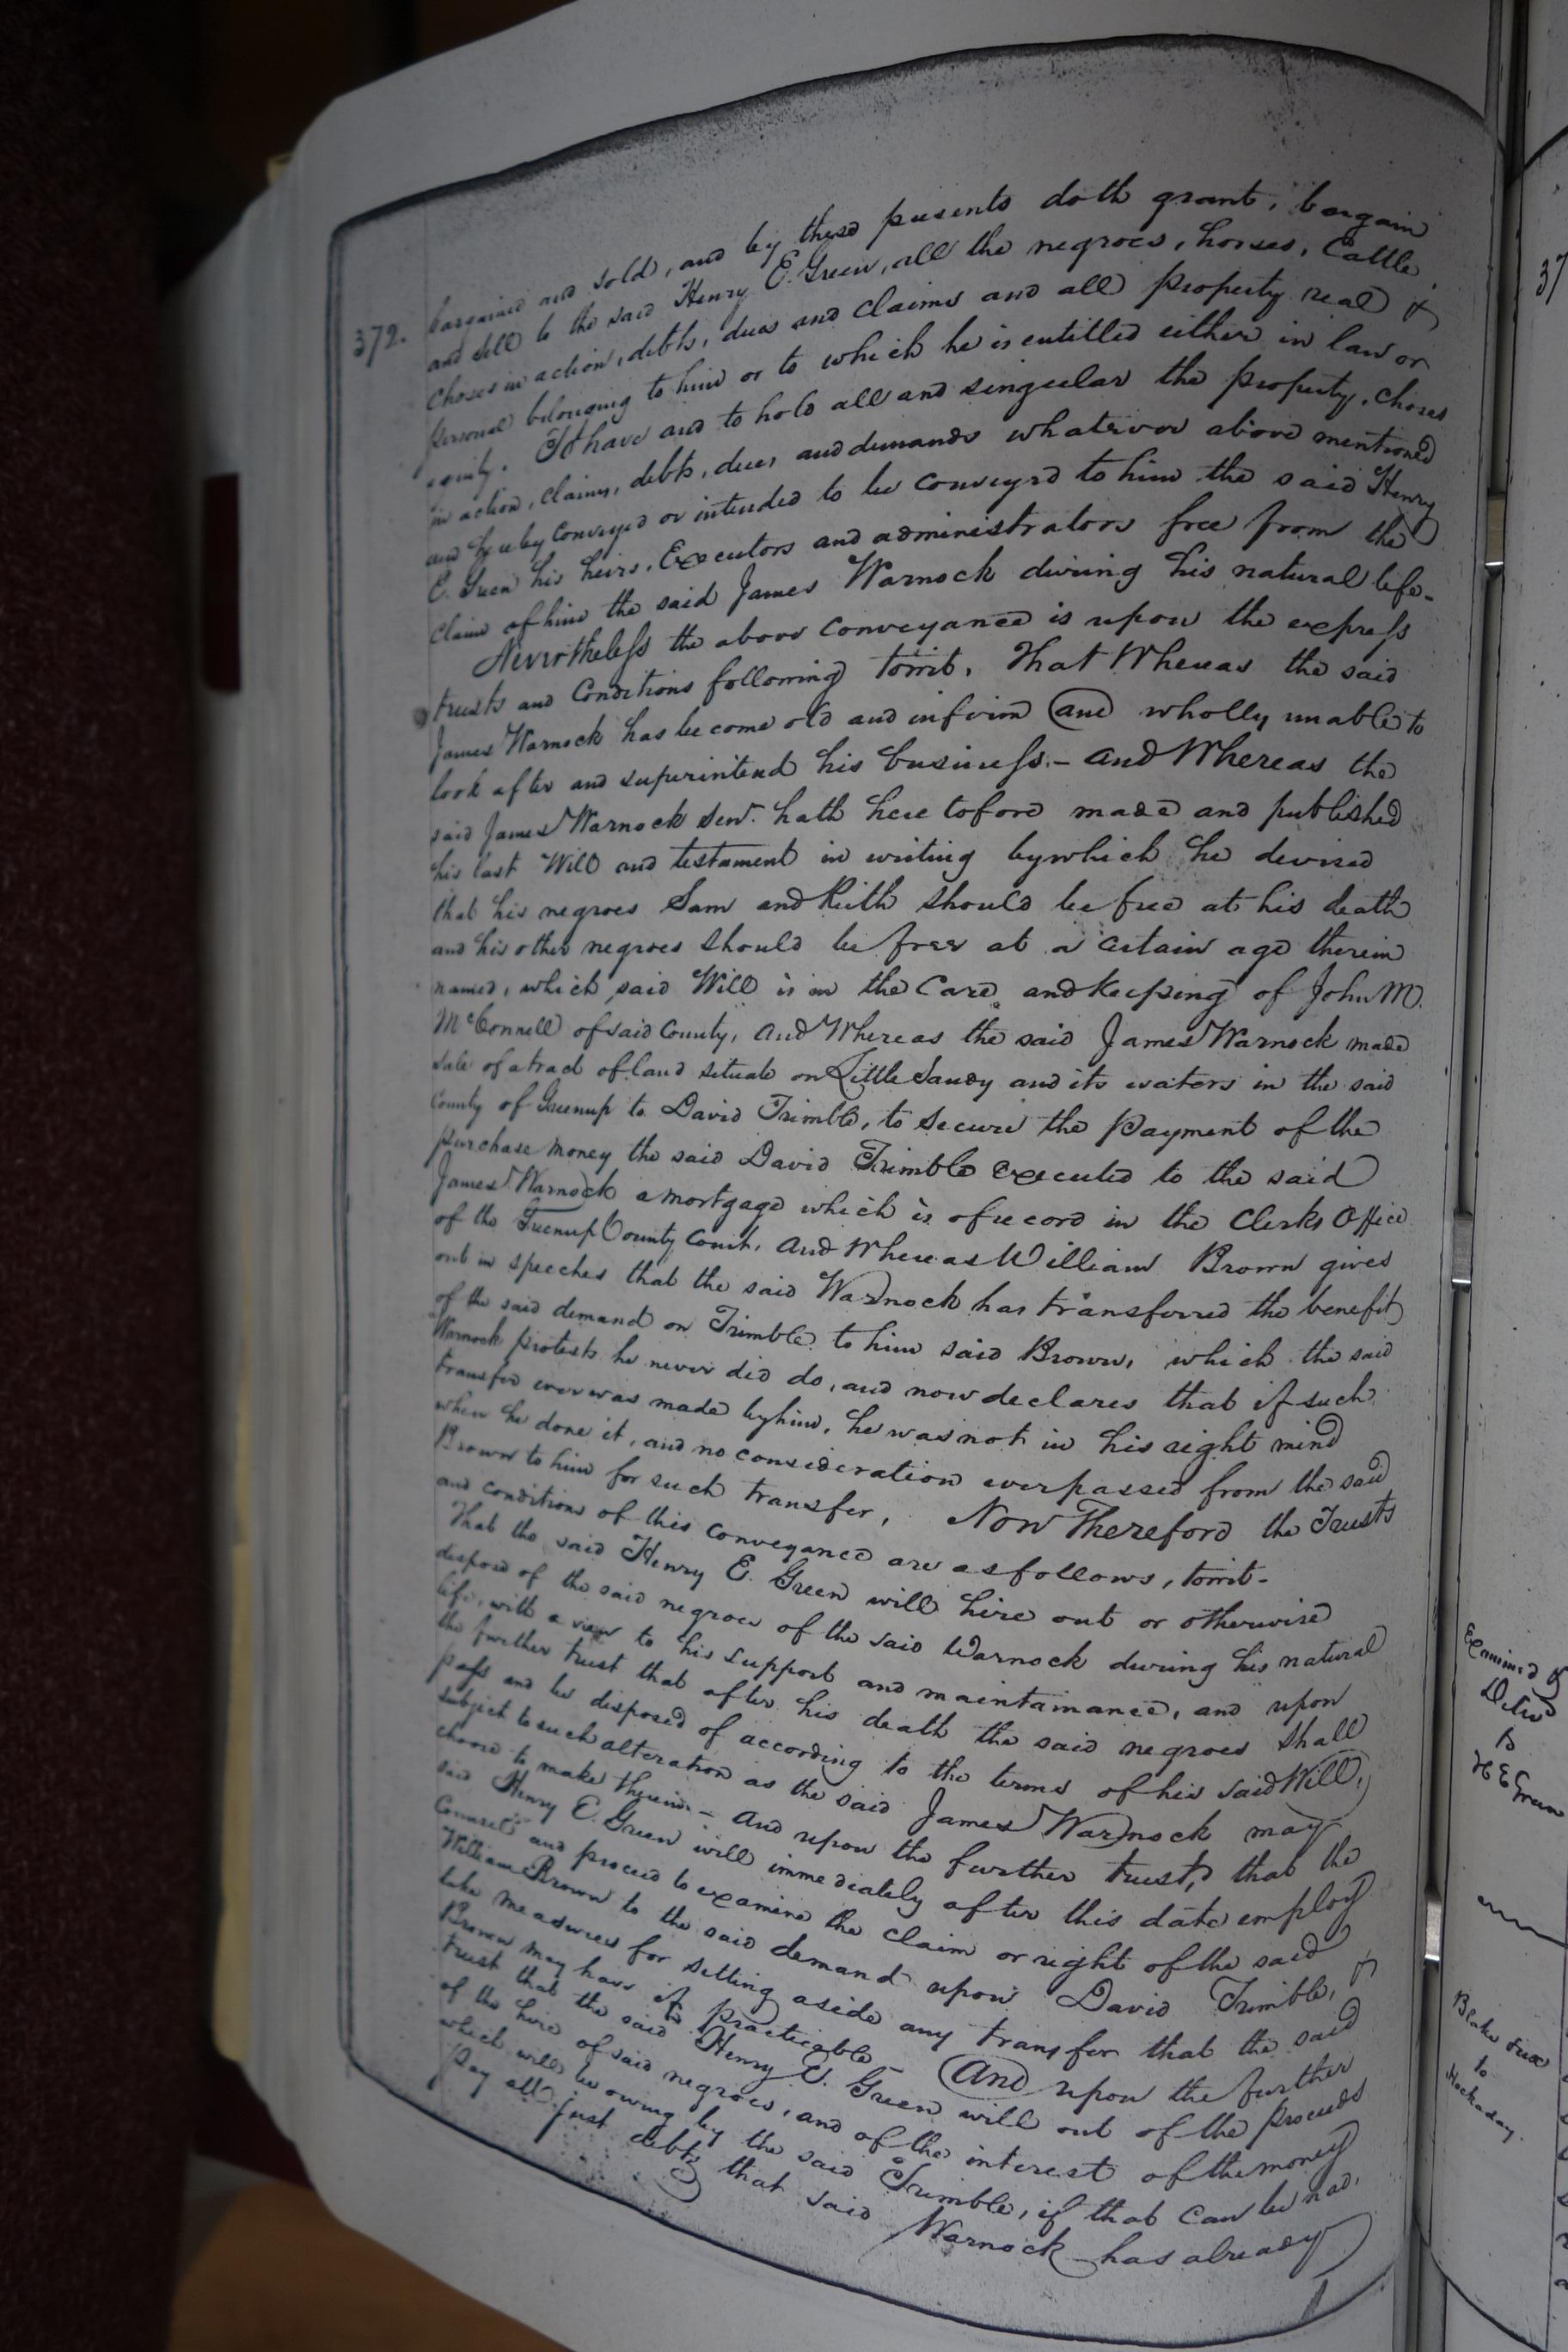 372.
bargained and sold, and by these presents doth grant, bargain
and sell to the said Henry E. Green, all the negroes, horses, Cattle,
Choses in action, debts, dues and claims and all property real &
personal belonging to him or to which he is entitled either in law or
equity. To have and to hold all and singular the property, choses
in action, claims, debts, dues and demands whatever above mentioned
and hereby conveyed or intended to be conveyed to him the said Henry
E. Green his heirs, Executors and administrators free from the
claim of him the said James Warnock during his natural life-
Nevertheless the above conveyance is upon the express
trusts and Conditions following towit. That Whereas the said
James Warnock has become old and infirm and wholly unable to
look after and superintend his business.- And Whereas the
said James Warnock Senr. hath heretofore made and published
his last Will and testament in writing by which he devised
that his negroes Sam and Ruth should be free at his death
and his other negroes should be free at a certain age therein
named, which said Will is in the Care and keeping of John M.
McConnell of said County, And Whereas the said James Warnock made
sale of a tract of land situate on Little Sandy and its waters in the said
County of Greenup to David Trimble, to secure the Payment of the
purchase money the said David Trimble executed to the said
James Warnock a mortgage which is of record in the Clerks Office
of the Greenup County Court. And Whereas William Brown gives
out in speeches that the said Warnock has transferred the benefit
of the said demand on Trimble to him said Brown, which the said
Warnock protests he never did do, and now declares that if such
transfer ever was made by him, he was not in his right mind
when he done it, and no consideration ever passed from the said
Brown to him for such transfer, Now Therefore the Trusts
and conditions of this conveyance are as follows, towit-
That the said Henry E. Green will hire out or otherwise
dispose of the said negroes of the said Warnock during his natural
life, with a view to his support and maintainance, and upon
the further trust that after his death the said negroes shall
pass and be disposed of according to the terms of his said Will,
subject to such alteration as the said James Warnock may
choose to make therein- And upon the further trust, that the
said Henry E. Green will immediately after this date employ
Counsel and proceed to examine the claim or right of the said
William Brown to the said demand upon David Trimble, &
take measures for setting aside any transfer that the said
Brown may have if practicable- And upon the further
trust that the said Henry E. Green will out of the proceeds
of the hire of said negroes, and of the interest of the money
which will be owing by the said Trimble, if that can be had,
Pay all just debts that said Warnock has already
37
Examined &
Delivd
to
H E Green
to
Hockaday